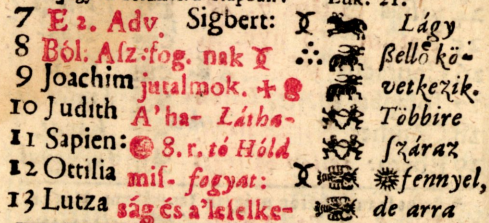 7 E 2. Adv. Sigbert: Lágy
8 Ból. Aſz.fog. nak ßellő kö-
9 Joachim jutalmok. vetkezik.
10 Judith A'ha- Látha- Többire
11 Sapien: 8. r. tó Hóld ſzáraz
12 Ottilia miſ- fogyat: fennyel,
13 Lutza ság és a'leſelke- de arra